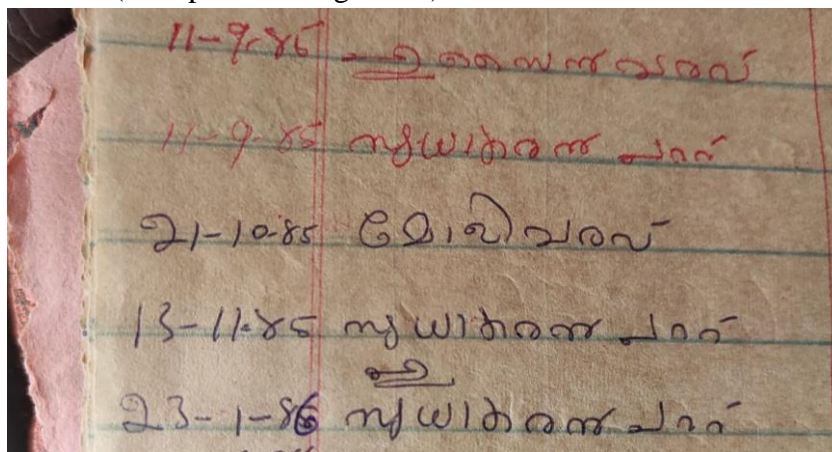 11-9-85 വരവ്
11-9-85 സുധാകരൻ പററ്
21-10-85 വരവ്
13-11-85 സുധാകരൻ പററ്
23-1-86 സുധാകരൻ പററ്